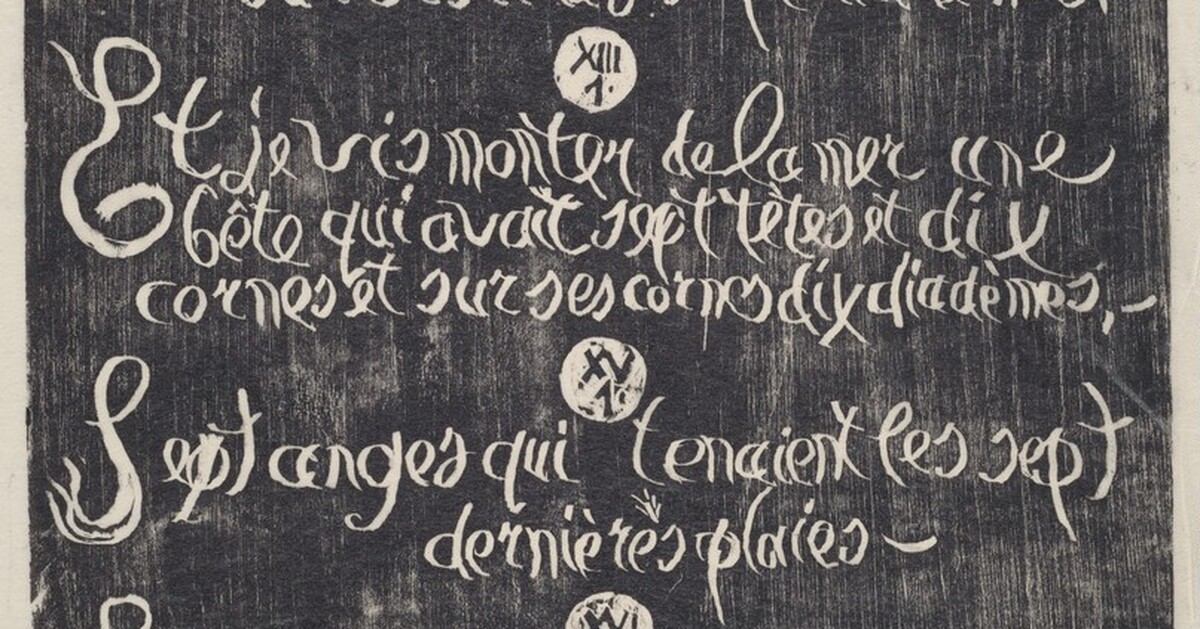 XIII
1.
Et je vis monter de la mer une
bête qui avait sept têtes et dix
cornes et sur ses cornes dix diadèmes,—
XV
1.
Sept anges qui tenaient les sept
dernières plaies —
XVI